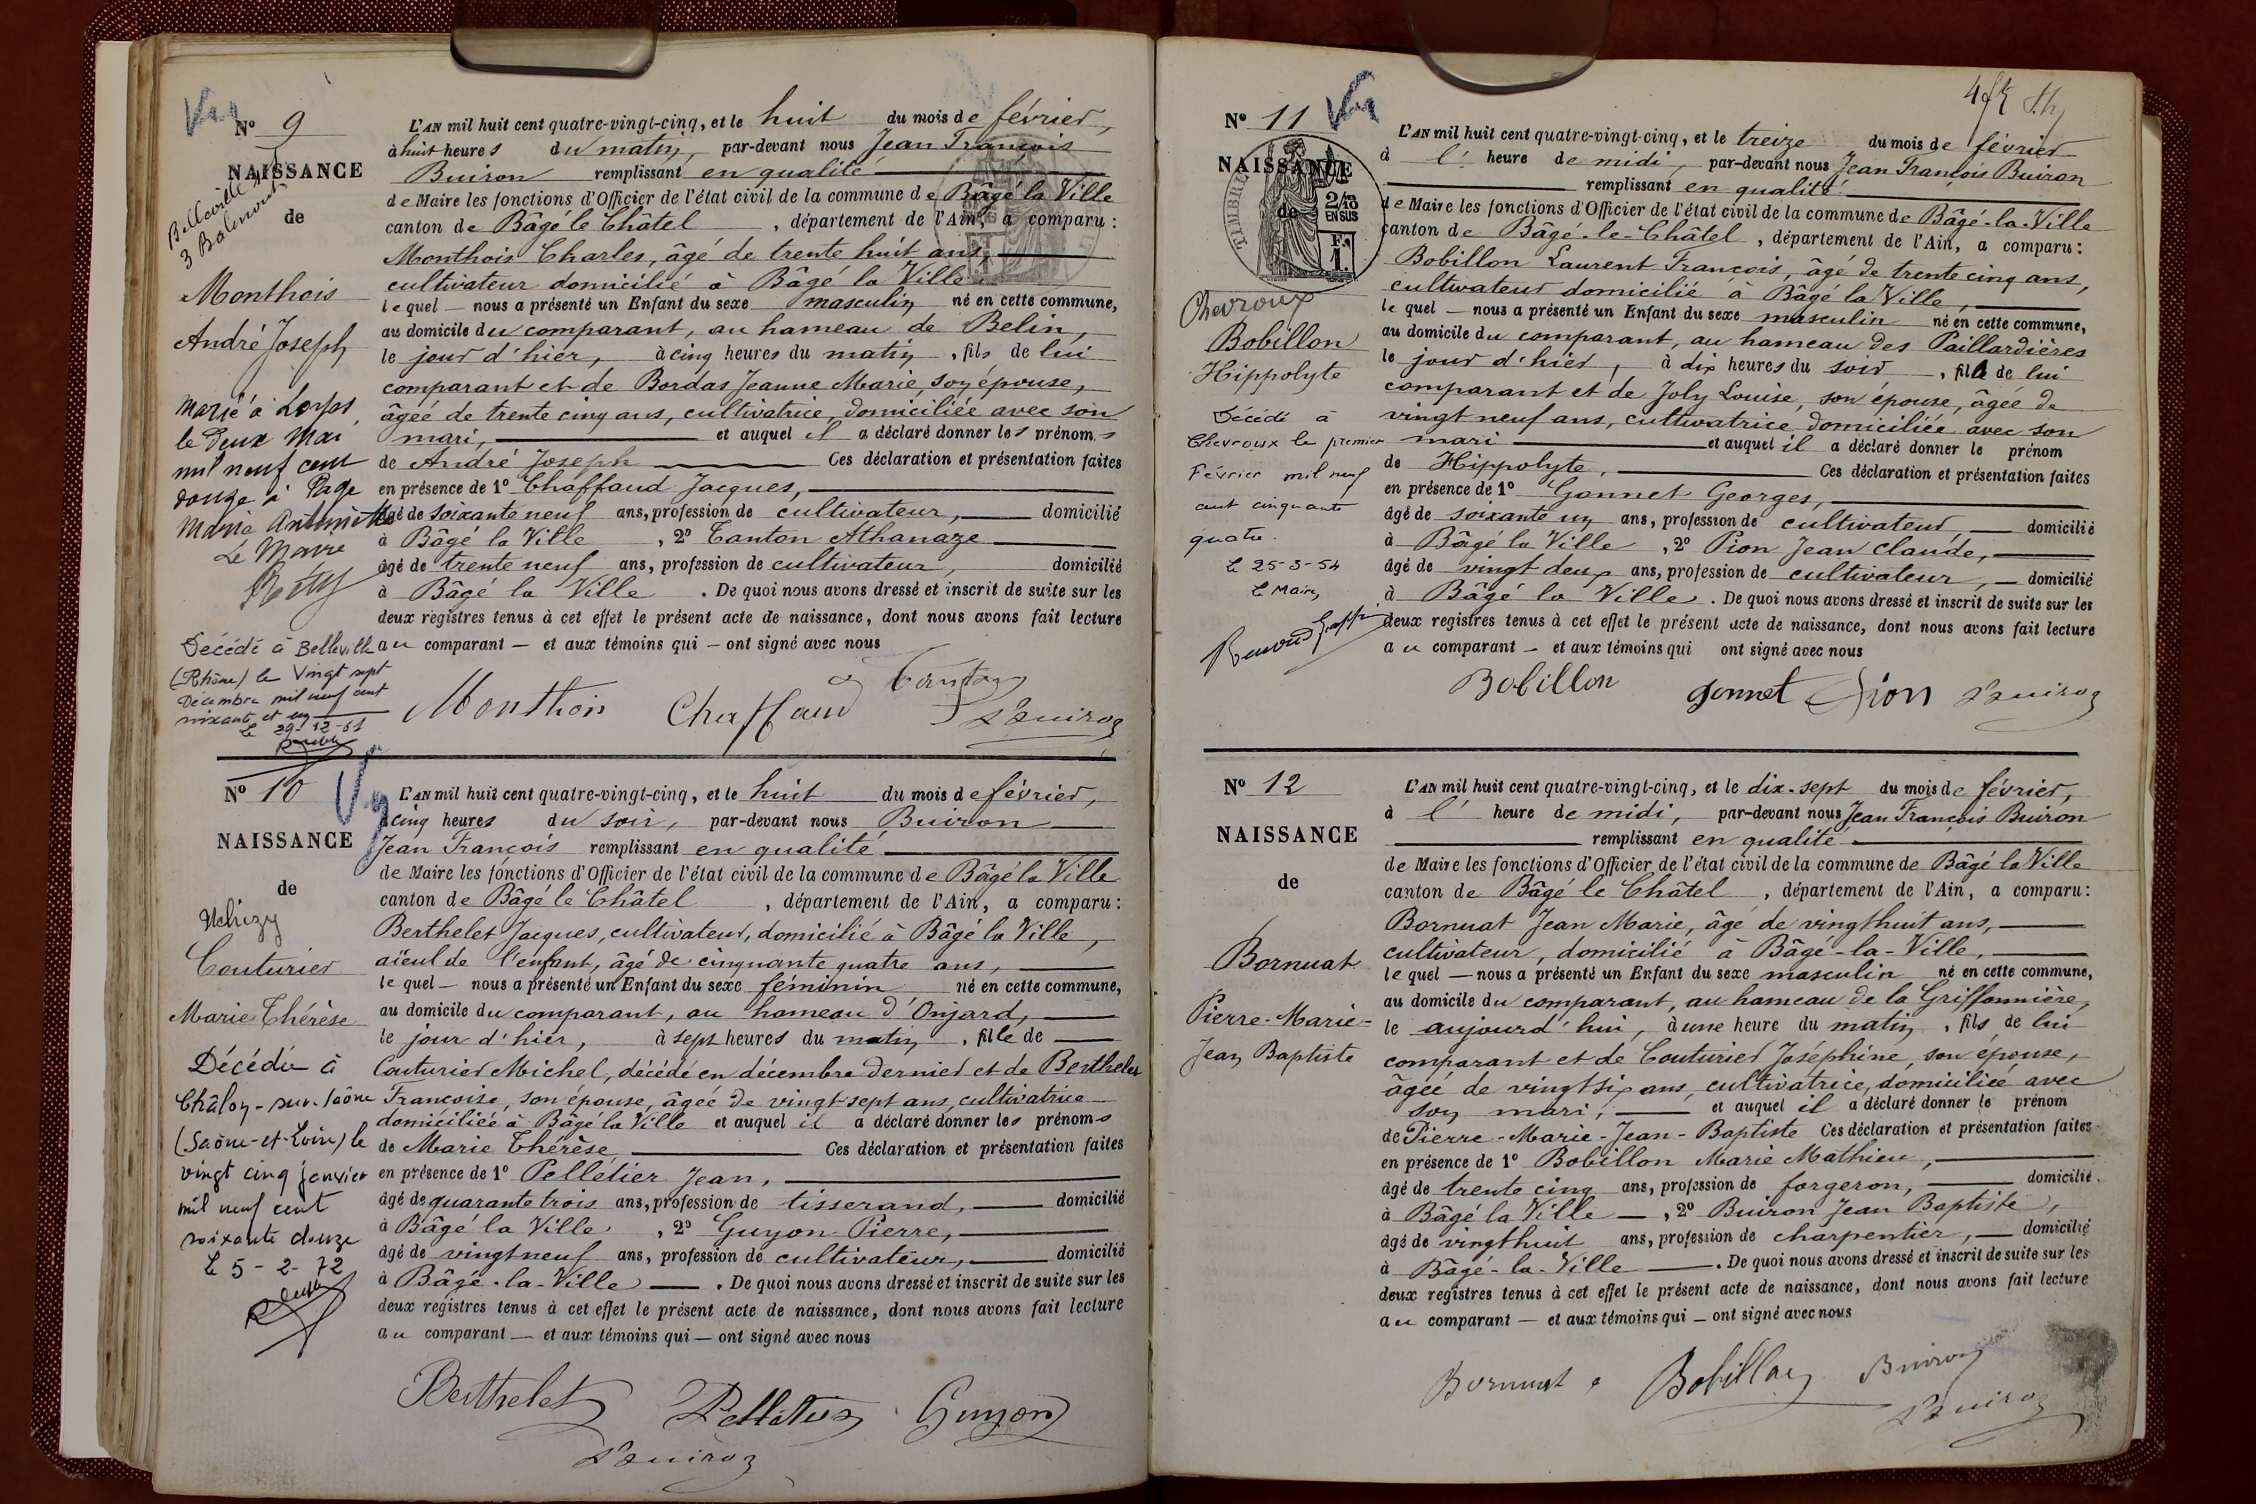 Nº 9
NAISSANCE
de
Belleville
3
Monthois
André Joseph
Marié à
le deux Mai
mil neuf cent
douze à Page
Marie Antoinette
Le Maire
Décédé à Belleville
(Rhône) le Vingt sept
Décembre mil neuf cent
soixante et un
le 29-12-61
L'AN mil huit cent quatre-vingt-cinq, et le huit du mois de février,
à huit heures du matin, par-devant nous Jean François
Buiron remplissant en qualité
de Maire les fonctions d'Officier de l'état civil de la commune de Bâgé la Ville
canton de Bâgé le Châtel, département de l'Ain, a comparu :
Monthois Charles, âgé de trente huit ans,
cultivateur domicilié à Bâgé la Ville
lequel — nous a présenté un Enfant du sexe masculin né en cette commune,
au domicile du comparant, au hameau de Belin,
le jour d'hier, à cinq heures du matin, fils de lui
comparant et de Bordas Jeanne Marie son épouse,
âgée de trente cinq ans, cultivatrice, domiciliée avec son
mari, et auquel il a déclaré donner les prénoms
de André Joseph Ces déclaration et présentation faites
en présence de 1º Chaffaud Jacques,
âgé de soixante neuf ans, profession de cultivateur, domicilié
à Bâgé la Ville, 2º Tanton Athanaze
âgé de trente neuf ans, profession de cultivateur, domicilié
à Bâgé la Ville. De quoi nous avons dressé et inscrit de suite sur les
deux registres tenus à cet effet le présent acte de naissance, dont nous avons fait lecture
au comparant — et aux témoins qui — ont signé avec nous
Monthois Chaffaud Tanton
J. Buiron
Nº 10
NAISSANCE
de
Uchizy
Couturier
Marie Thérèse
Décédée à
Châlon-sur-Saône
(Saône-et-Loire) le
vingt cinq janvier
mil neuf cent
soixante douze
le 5-2-72
L'AN mil huit cent quatre-vingt-cinq, et le huit du mois de février,
à cinq heures du soir, par-devant nous Buiron
Jean François remplissant en qualité
de Maire les fonctions d'Officier de l'état civil de la commune de Bâgé la Ville
canton de Bâgé le Châtel, département de l'Ain, a comparu :
Berthelet Jacques, cultivateur, domicilié à Bâgé la Ville,
aïeul de l'enfant, âgé de cinquante quatre ans,
lequel — nous a présenté un Enfant du sexe féminin né en cette commune,
au domicile du comparant, au hameau d'Onjard,
le jour d'hier, à sept heures du matin, fille de
Couturier Michel, décédé en décembre dernier et de Berthelet
Françoise, son épouse, âgée de vingt-sept ans, cultivatrice
domiciliée à Bâgé la Ville et auquel il a déclaré donner les prénoms
de Marie Thérèse, Ces déclaration et présentation faites
en présence de 1º Pelletier Jean,
âgé de quarante trois ans, profession de tisserand, domicilié
à Bâgé la Ville, 2º Guyon Pierre,
âgé de vingt neuf ans, profession de cultivateur, domicilié
à Bâgé-la-Ville — . De quoi nous avons dressé et inscrit de suite sur les
deux registres tenus à cet effet le présent acte de naissance, dont nous avons fait lecture
au comparant — et aux témoins qui — ont signé avec nous
Berthelet Pelletier Guyon
J. Buiron
Nº 11
NAISSANCE
de
TIMBRE
2/10
EN SUS
Chevroux
Bobillon
Hippolyte
Décédé à
Chevroux le premier
Février mil neuf
cent cinquante
quatre.
le 25-3-54
Le Maire
L'AN mil huit cent quatre-vingt-cinq, et le treize du mois de février
à l' heure de midi, par-devant nous Jean François Buiron
remplissant en qualité
de Maire les fonctions d'Officier de l'état civil de la commune de Bâgé-la-Ville
canton de Bâgé-le-Châtel, département de l'Ain, a comparu :
Bobillon Laurent François, âgé de trente cinq ans,
cultivateur domicilié à Bâgé la Ville,
lequel — nous a présenté un Enfant du sexe masculin né en cette commune,
au domicile du comparant, au hameau des Paillardières
le jour d'hier, à dix heures du soir, fils de lui
comparant et de Joly Louise, son épouse, âgée de
vingt neuf ans, cultivatrice domiciliée avec son
mari et auquel il a déclaré donner le prénom
de Hippolyte, Ces déclaration et présentation faites
en présence de 1º Gonnet Georges,
âgé de soixante un ans, profession de cultivateur domicilié
à Bâgé la Ville, 2º Pion Jean Claude,
âgé de vingt deux ans, profession de cultivateur, — domicilié
à Bâgé la Ville. De quoi nous avons dressé et inscrit de suite sur les
deux registres tenus à cet effet le présent acte de naissance, dont nous avons fait lecture
au comparant — et aux témoins qui ont signé avec nous
Bobillon Gonnet Pion J. Buiron
Nº 12
NAISSANCE
de
Bornuat
Pierre-Marie-
Jean Baptiste
L'AN mil huit cent quatre-vingt-cinq, et le dix-sept du mois de février,
à l' heure de midi, par-devant nous Jean François Buiron
remplissant en qualité
de Maire les fonctions d'Officier de l'état civil de la commune de Bâgé la Ville
canton de Bâgé le Châtel, département de l'Ain, a comparu :
Bornuat Jean Marie, âgé de vingt huit ans,
cultivateur, domicilié à Bâgé-la-Ville,
lequel — nous a présenté un Enfant du sexe masculin né en cette commune,
au domicile du comparant, au hameau de la Griffonnière,
le aujourd'hui, à une heure du matin, fils de lui
comparant et de Couturier Joséphine, son épouse,
âgée de vingt six ans, cultivatrice, domiciliée avec
son mari, et auquel il a déclaré donner le prénom
de Pierre-Marie-Jean-Baptiste Ces déclaration et présentation faites
en présence de 1º Bobillon Marie Mathieu,
âgé de trente cinq ans, profession de forgeron, domicilié
à Bâgé la Ville —, 2º Buiron Jean Baptiste,
âgé de vingt huit ans, profession de charpentier, — domicilié
à Bâgé-la-Ville — . De quoi nous avons dressé et inscrit de suite sur les
deux registres tenus à cet effet le présent acte de naissance, dont nous avons fait lecture
au comparant — et aux témoins qui — ont signé avec nous
Bornuat Bobillon Buiron
J. Buiron